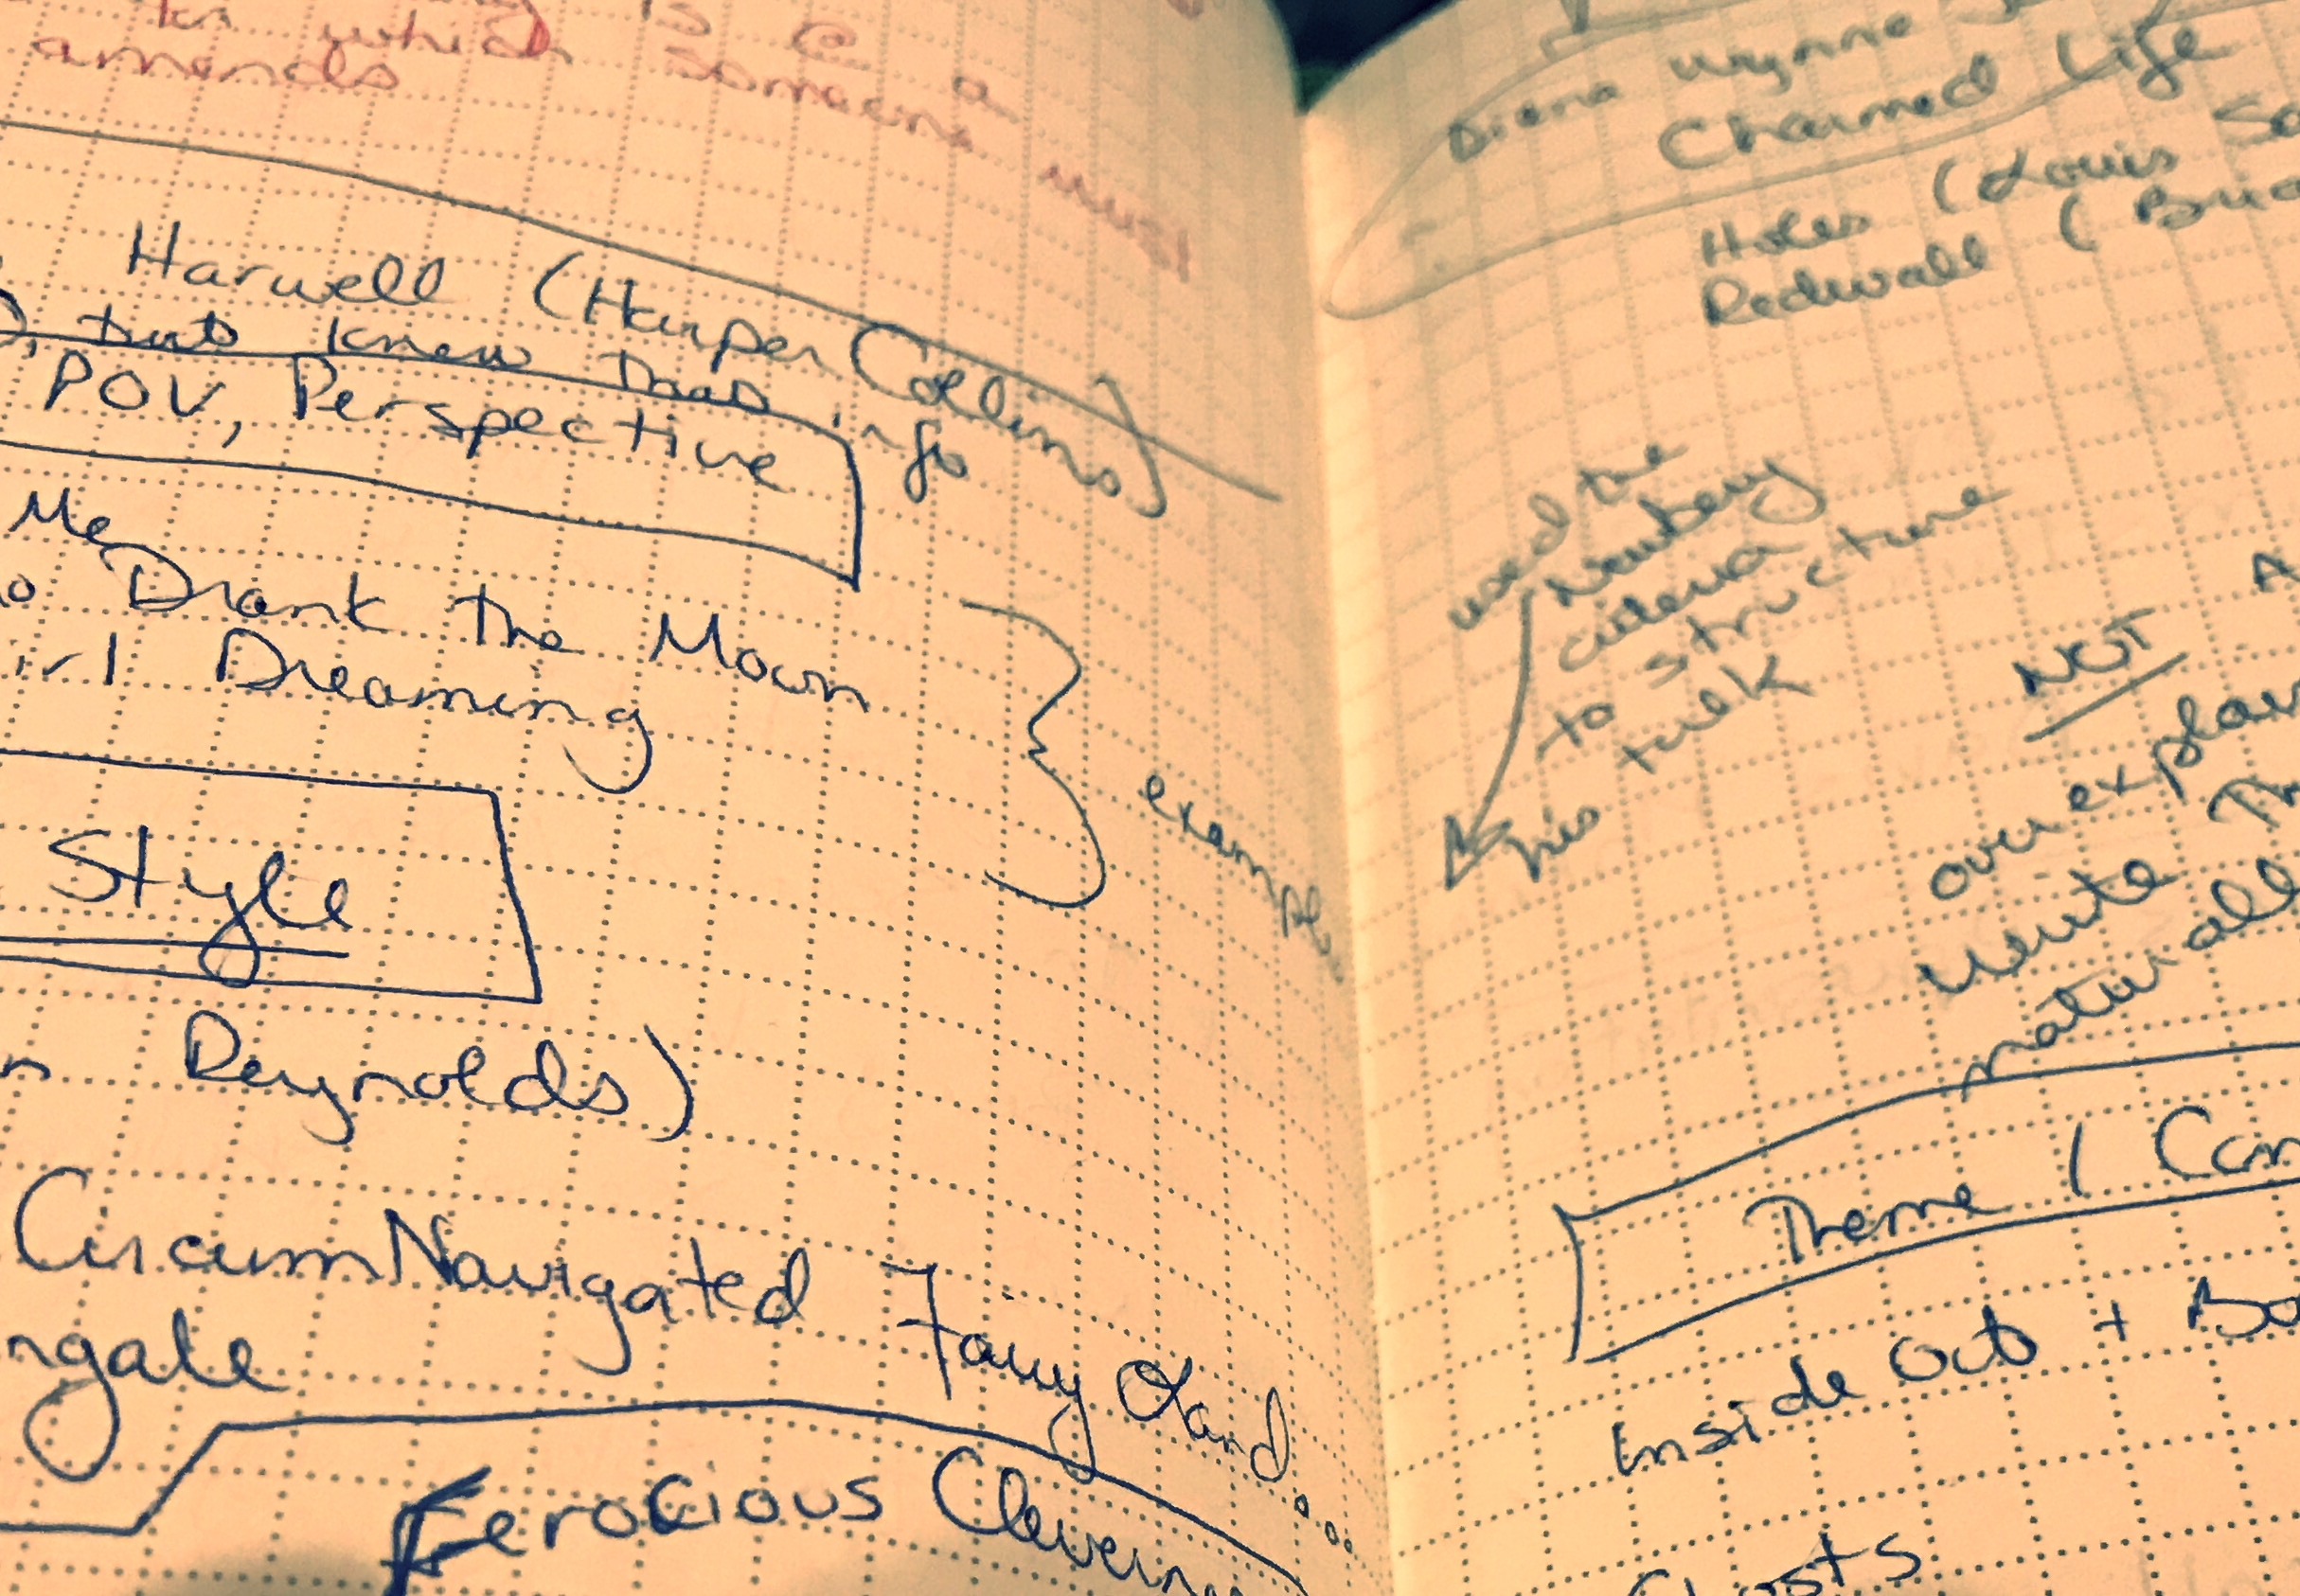 in which is @ a
amends someone must
Harwell (Harper Collins)
, but knew that info
POV, Perspective
Me
o Drank the Moon
irl Dreaming
example
Style
n Reynolds)
CircumNavigated Fairy Land...
ngale
Ferocious Clevern
Diana Wynne
Charmed Life
Holes (Louis Sa
Redwall (Bria
used the
Newbery
criteria
to structure
his talk
A
NOT
over explain
write Th
naturall
Theme / Con
Inside Out + Ba
Ghosts